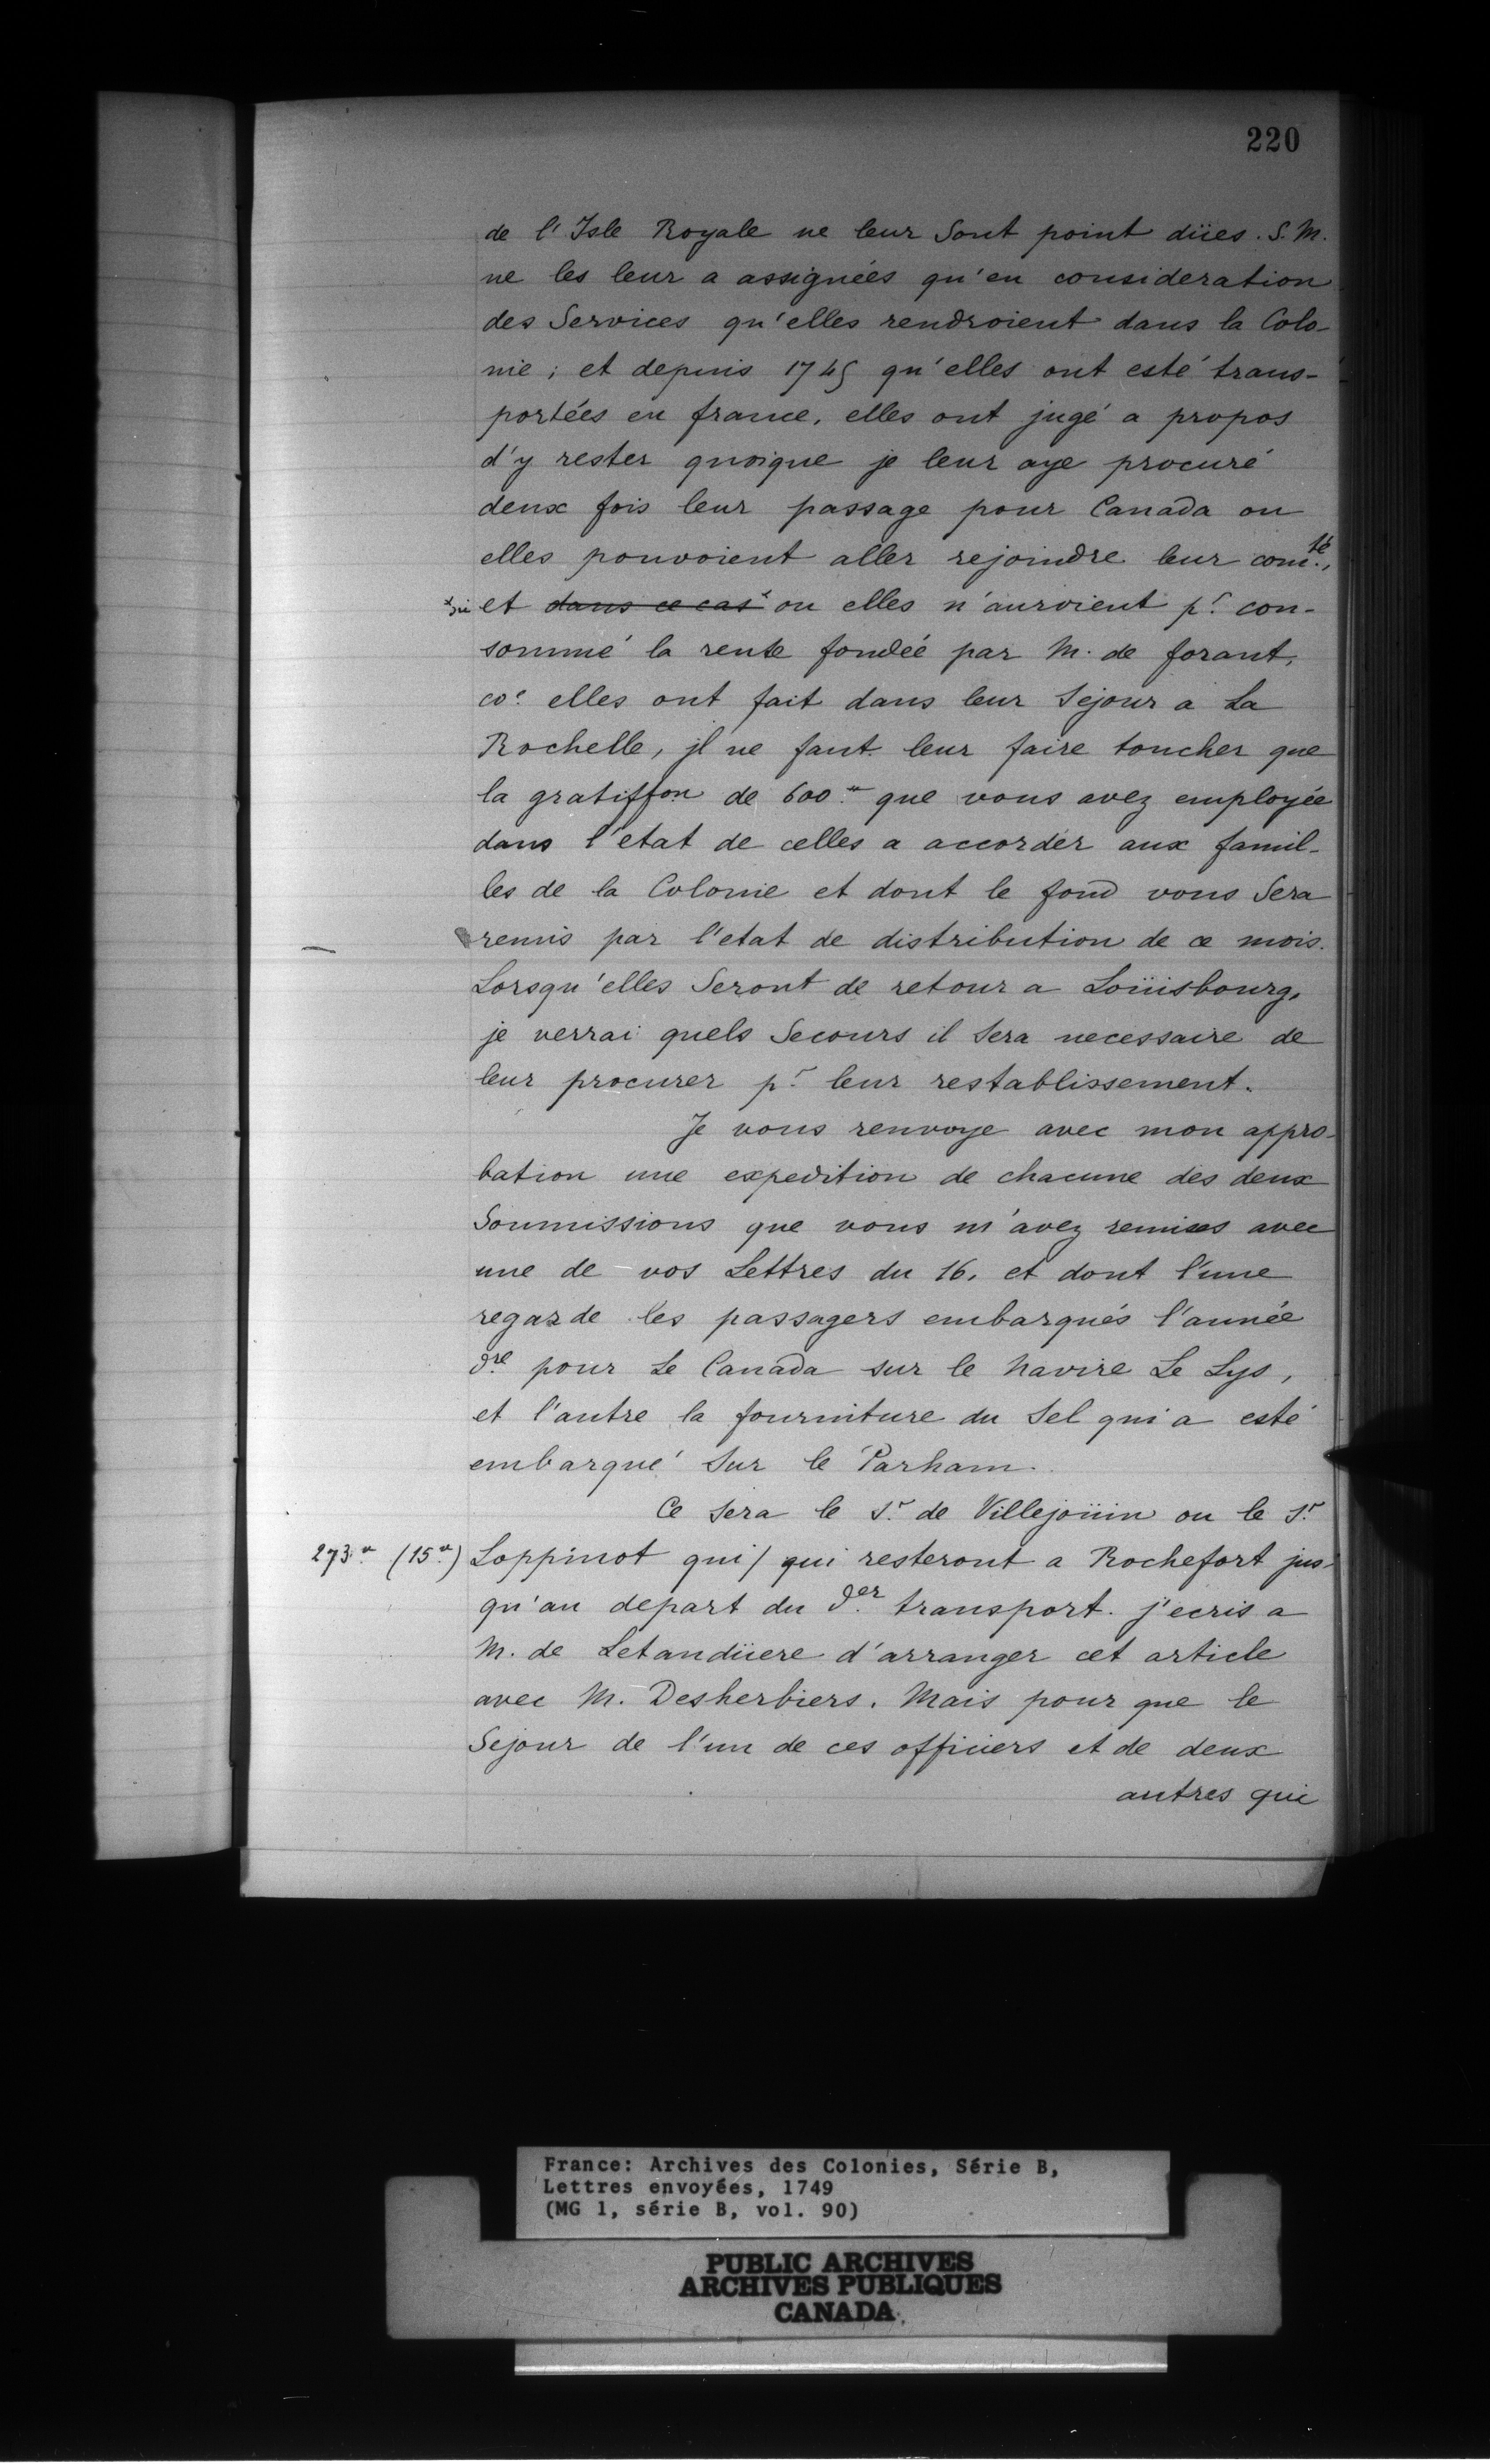 220
de l'Isle Royale ne leur sont point düees. S. M.
ne les leur a assignées qu'en consideration
des Services qu'elles rendroient dans la Colo-
nie ; et depuis 1745 qu'elles ont esté trans-
portées en france, elles ont jugé a propos
d'y rester quoique je leur aye procuré
deux fois leur passage pour Canada ou
elles pouvoient aller rejoindre leur com.té,
et dans ce cas ou elles n'auroient p.r con-
sommé la rente fondéé par M. de forant,
co.e elles ont fait dans leur Sejour a La
Rochelle, jl ne faut leur faire toucher que
la gratiffon de 600.tt que vous avez employée
dans l'etat de celles a accorder aux famil-
les de la Colonie et dont le fond vous Sera
remis par l'etat de distribution de ce mois.
Lorsqu'elles Seront de retour a Loüisbourg,
je verrai quels Secours il Sera necessaire de
leur procurer p.r leur restablissement.
Je vous renvoye avec mon appro-
bation une expedition de chacune des deux
Soumissions que vous m'avez remises avec
une de vos Lettres du 16. et dont l'une
regarde les passagers embarqués l'année
d.re pour Le Canada sur le Navire Le Lys,
et l'autre la fourniture du Sel qui a esté
embarqué sur le Parham.
Ce Sera le S.r de Villejoüin ou le S.r
273.tt (15.tt) Loppinot qui/ qui resteront a Rochefort jus-
qu'au depart du d.er transport. j'ecris a
M. de Letandüere d'arranger cet article
avec M. Desherbiers. Mais pour que le
Sejour de l'un de ces officiers et de deux
autres qui
France: Archives des Colonies, Série B,
Lettres envoyées, 1749
(MG 1, série B, vol. 90)
PUBLIC ARCHIVES
ARCHIVES PUBLIQUES
CANADA